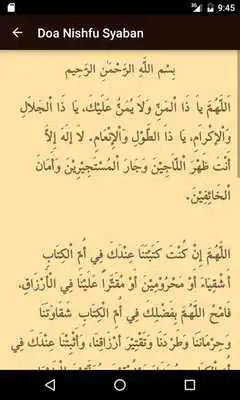 9:45
Doa Nishfu Syaban
بِسْمِ اللَّهِ الرَّحْمَٰنِ الرَّحِيمِ
اَللَّهُمَّ يَا ذَا الْمَنِّ وَلَا يُمَنُّ عَلَيْكَ، يَا ذَا الْجَلَالِ
وَالْإِكْرَامِ، يَا ذَا الطَّوْلِ وَالْإِنْعَامِ. لَا إِلَهَ إِلَّا
أَنْتَ ظَهْرَ اللَّاجِيْنَ وَجَارَ الْمُسْتَجِيْرِيْنَ وَأَمَانَ
الْخَائِفِيْنَ.
اَللَّهُمَّ إِنْ كُنْتَ كَتَبْتَنَا عِنْدَكَ فِي أُمِّ الْكِتَابِ
أَشْقِيَاءَ أَوْ مَحْرُوْمِيْنَ أَوْ مُقَتَّرًا عَلَيْنَا فِي الْأَرْزَاقِ،
فَامْحُ اللَّهُمَّ بِفَضْلِكَ فِي أُمِّ الْكِتَابِ شَقَاوَتَنَا
وَحِرْمَانَنَا وَطَرْدَنَا وَتَقْتِيْرَ أَرْزَاقِنَا، وَأَثْبِتْنَا عِنْدَكَ فِي